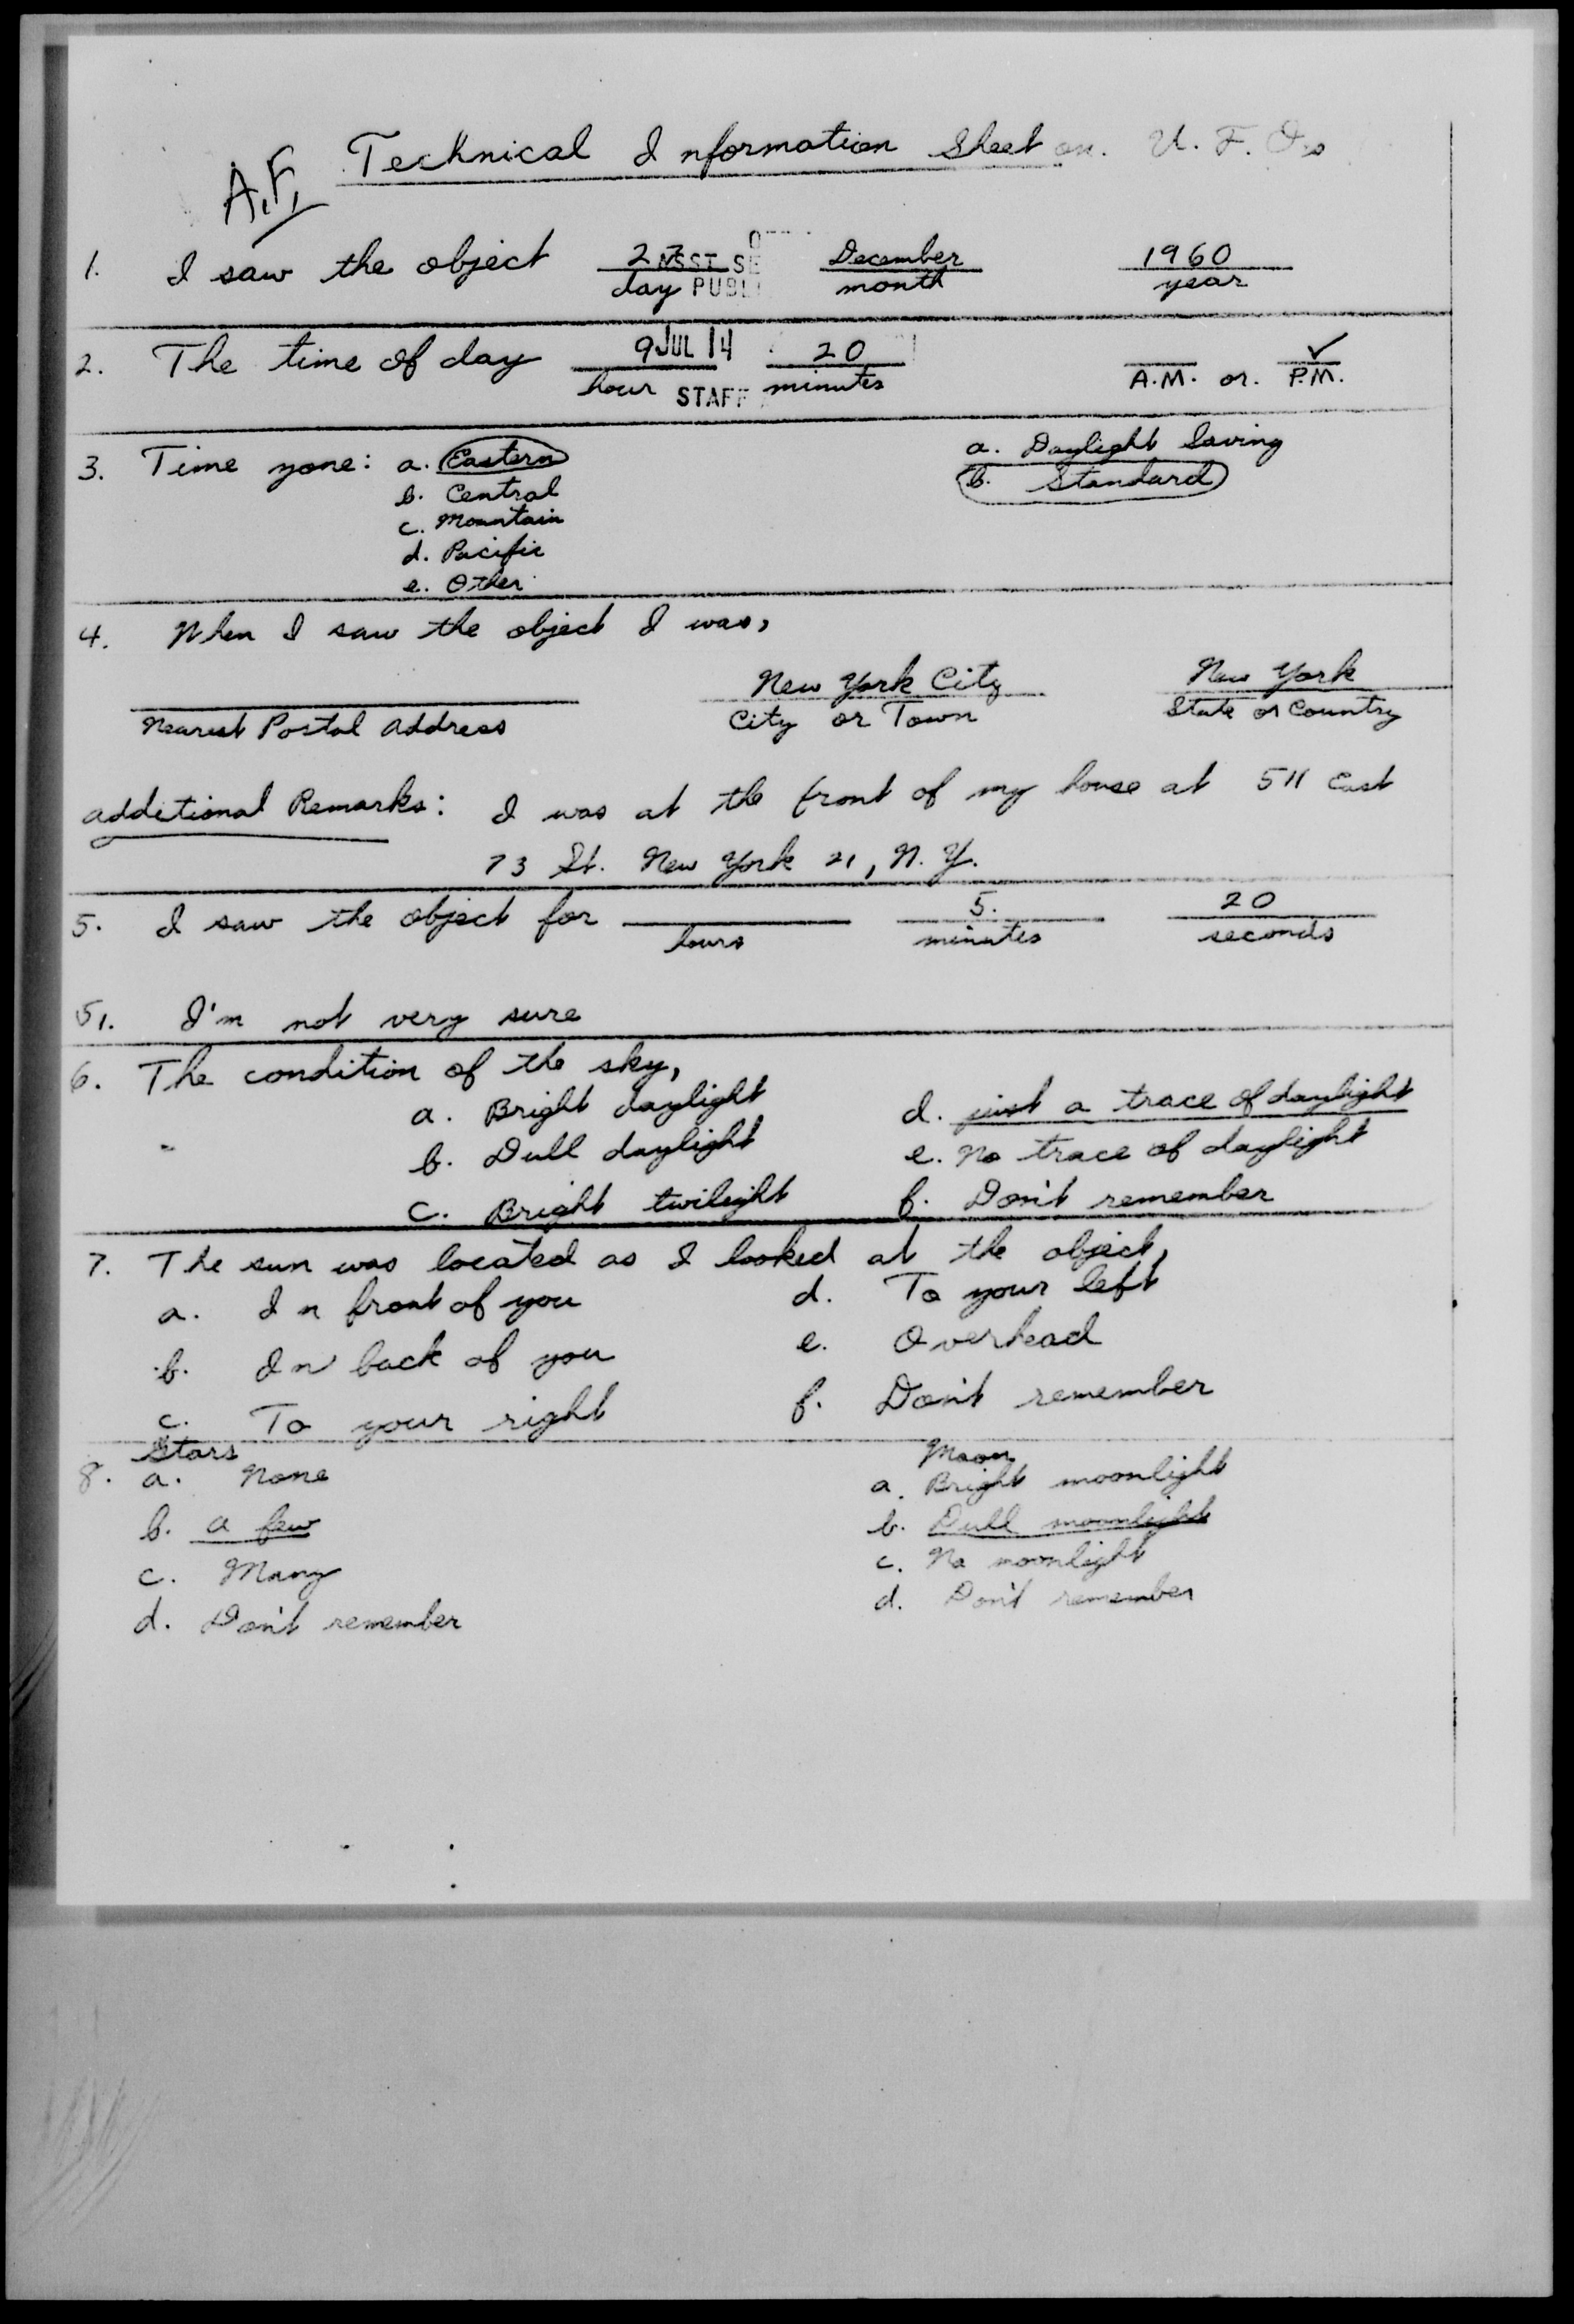 Technical Information Sheet on U. F. Os
A.F.
1. I saw the object 27 December 1960
day month year
NSST SE
PUBL
2. The time of day 9 20 ✓
hour minutes A.M. or. P.M.
JUL 14
STAFF
3. Time zone: a. Eastern a. Daylight Saving
b. Central b. Standard
c. Mountain
d. Pacific
e. Other
4. When I saw the object I was,
New York City New York
Nearest Postal Address City or Town State or Country
Additional Remarks: I was at the front of my house at 511 East
73 St. New York 21, N.Y.
5. I saw the object for 5. 20
hours minutes seconds
51. I'm not very sure
6. The condition of the sky,
a. Bright daylight d. just a trace of daylight
b. Dull daylight e. No trace of daylight
c. Bright twilight f. Don't remember
7. The sun was located as I looked at the object,
a. In front of you d. To your left
b. In back of you e. Overhead
c. To your right f. Don't remember
8. Stars Moon
a. None a. Bright moonlight
b. a few b. Dull moonlight
c. Many c. No moonlight
d. Don't remember d. Don't remember